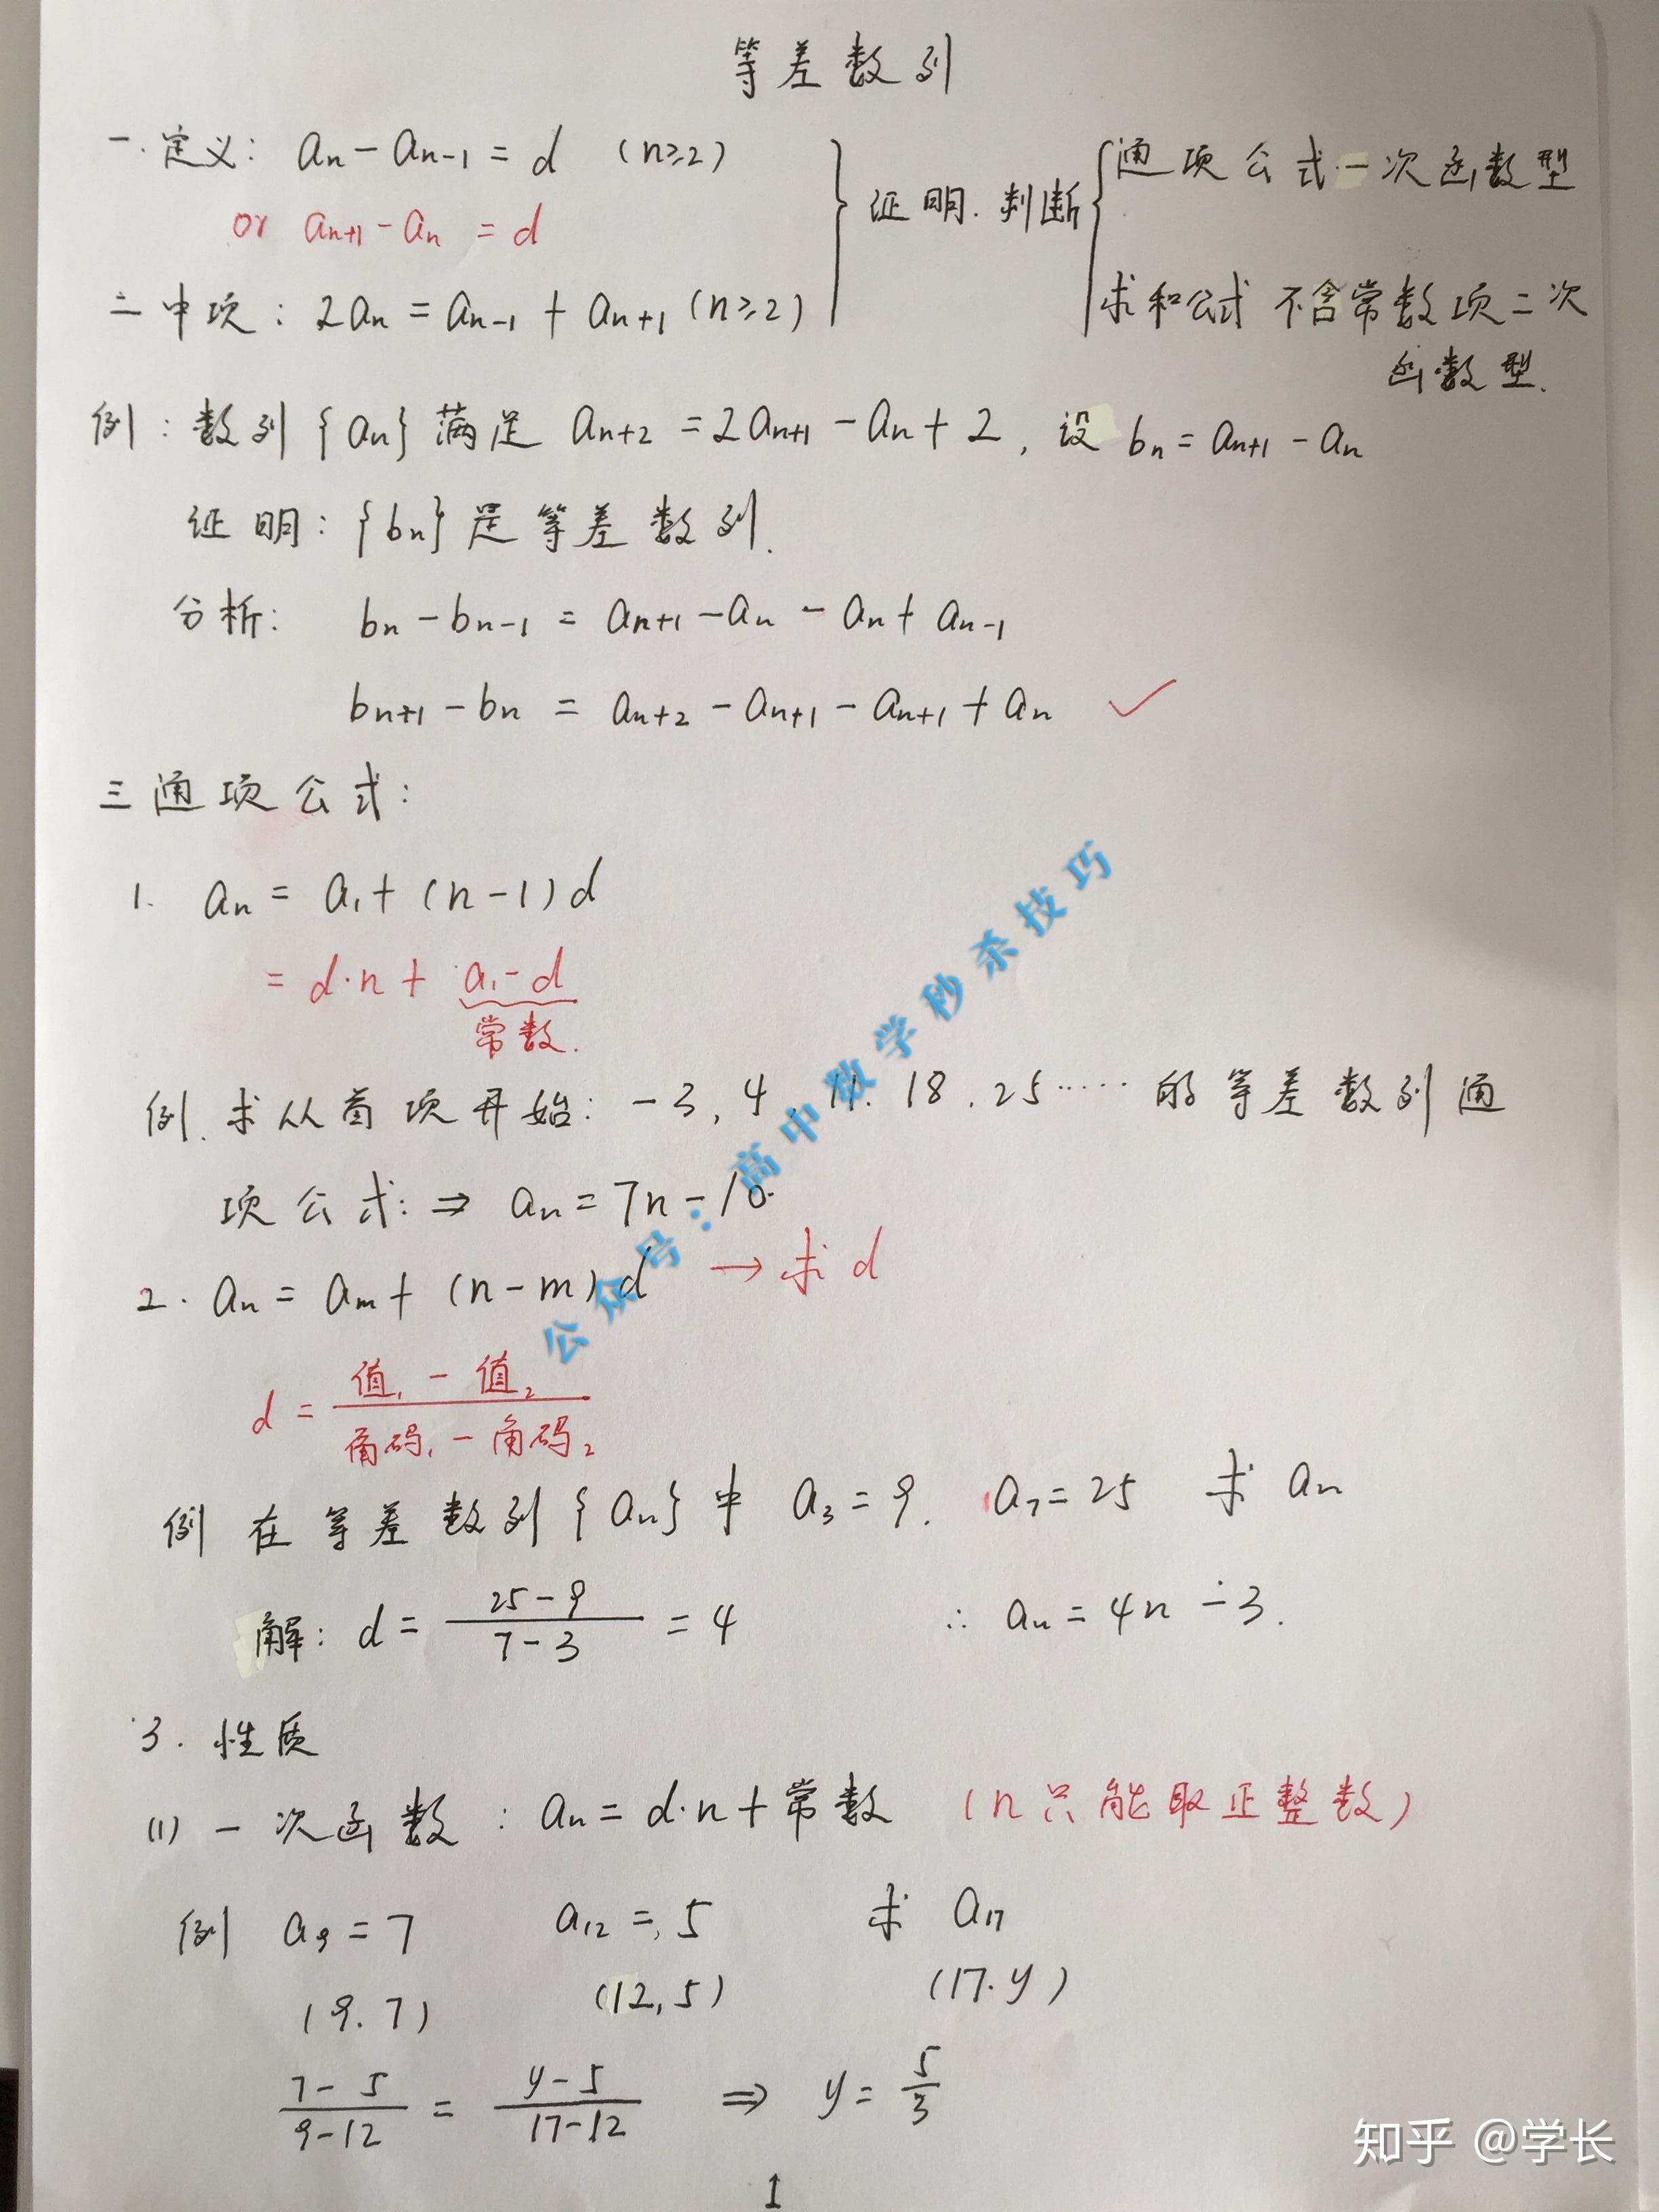 等差数列
一.定义: aₙ-aₙ₋₁=d (n≥2)
or aₙ₊₁-aₙ=d
二中项: 2aₙ=aₙ₋₁+aₙ₊₁ (n≥2)
证明.判断
通项公式一次函数型
求和公式 不含常数项二次
函数型.
例:数列{aₙ}满足 aₙ₊₂=2aₙ₊₁-aₙ+2, 设 bₙ=aₙ₊₁-aₙ
证明:{bₙ}是等差数列.
分析: bₙ-bₙ₋₁=aₙ₊₁-aₙ-aₙ+aₙ₋₁
bₙ₊₁-bₙ=aₙ₊₂-aₙ₊₁-aₙ₊₁+aₙ ✓
三通项公式:
1. aₙ=a₁+(n-1)d
=d·n+a₁-d
常数.
例.求从首项开始: -3, 4, 11. 18. 25……的等差数列通
项公式:⇒ aₙ=7n-10.
2. aₙ=aₘ+(n-m)d →求d
d=(值₁-值₂)/(角码₁-角码₂)
例 在等差数列{aₙ}中 a₃=9. a₇=25 求 aₙ
解: d=(25-9)/(7-3)=4 ∴ aₙ=4n-3.
3. 性质
(1) 一次函数: aₙ=d·n+常数 (n只能取正整数)
例 a₉=7 a₁₂=5 求 a₁₇
(9.7) (12,5) (17.y)
(7-5)/(9-12)=(y-5)/(17-12) ⇒ y=5/3
1
公众号:高中数学秒杀技巧
知乎 @学长